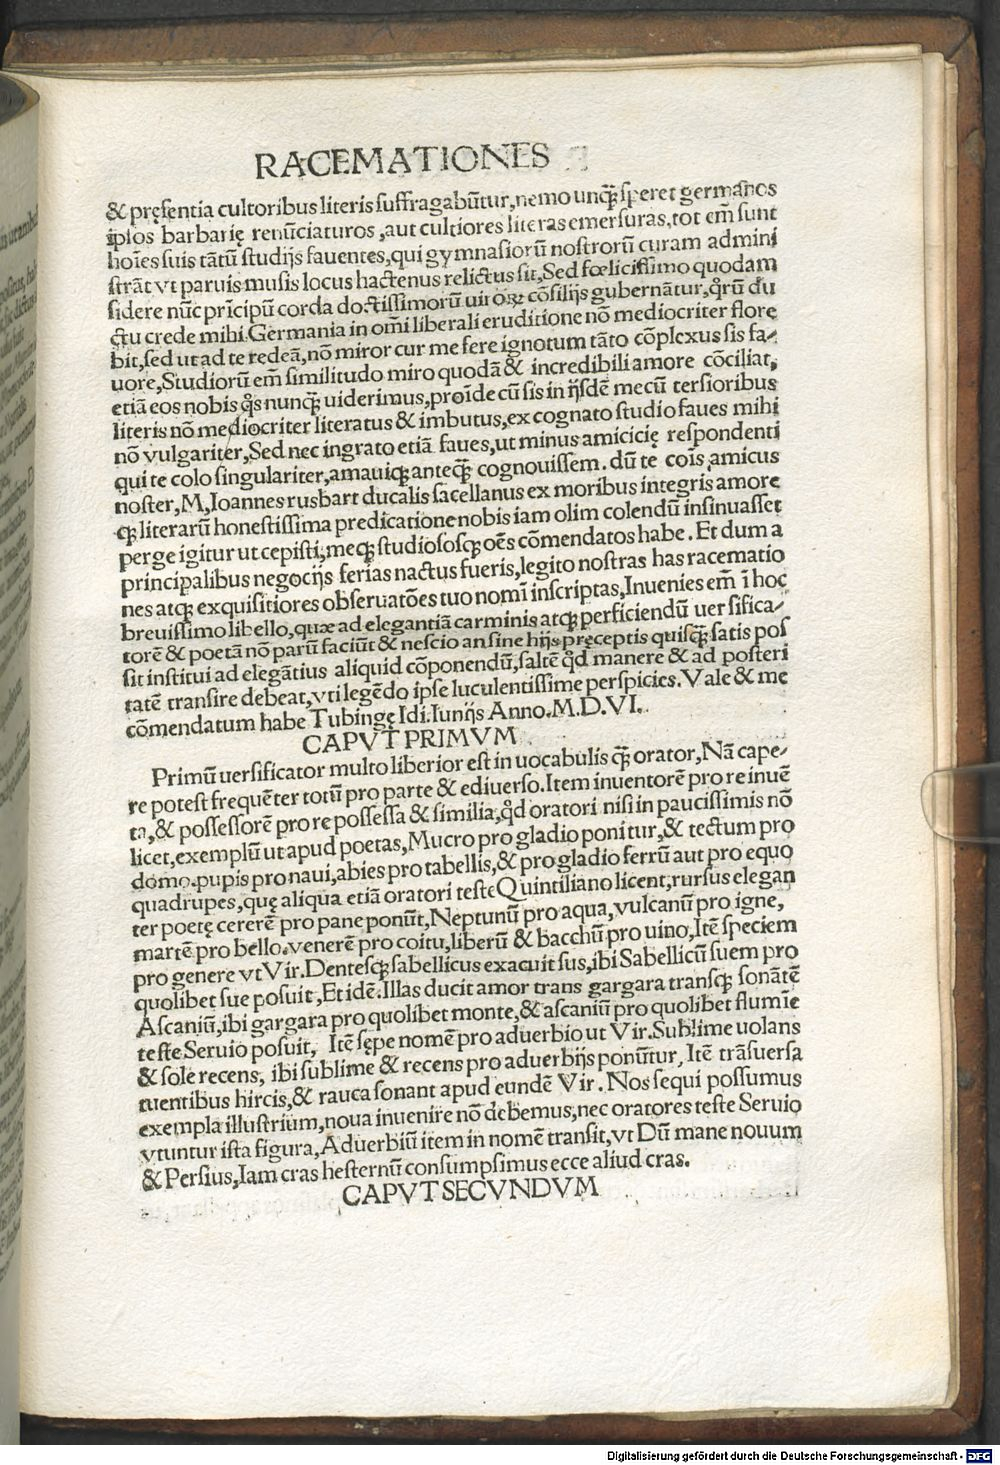 RACEMATIONES
& pręsentia cultoribus literis suffragabũtur, nemo unq̃ speret germanos
ipsos barbarię renũciaturos, aut cultiores literas emersuras, tot em̃ sunt
hoĩes suis tãtũ studijs fauentes, qui gymnasiorũ nostrorũ curam admini
strãt vt paruis musis locus hactenus relictus sit, Sed fœlicissimo quodam
sidere nũc prĩcipũ corda doctissimorũ uiroꝝ cõsilijs gubernãtur, qͦrũ du
ctu crede mihi. Germania in om̃i liberali eruditione nõ mediocriter flore
bit, sed ut ad te redeã, nõ miror cur me fere ignotum tãto cõplexus sis fa⸗
uore, Studiorũ em̃ similitudo miro quodã & incredibili amore cõciliat,
etiã eos nobis qͦs nunq̃ uiderimus, proĩde cũ sis in ijsdẽ mecũ tersioribus
literis nõ mediocriter literatus & imbutus, ex cognato studio faues mihi
nõ vulgariter, Sed nec ingrato etiã faues, ut minus amicicię respondenti
qui te colo singulariter, amauiqꝫ anteq̃ cognouissem. dũ te cõis amicus
noster, M, Ioannes rusbart ducalis sacellanus ex moribus integris amore
qꝫ literarũ honestissima predicatione nobis iam olim colendũ insinuasset
perge igitur ut cepisti, meqꝫ studiososqꝫ oẽs cõmendatos habe. Et dum a
principalibus negocijs ferias nactus fueris, legito nostras has racematio
nes atqꝫ exquisitiores obseruatões tuo nomĩ inscriptas, Inuenies em̃ ĩ hoc
breuissimo libello, quæ ad elegantiã carminis atqꝫ perficiendũ uersifica⸗
torẽ & poetã nõ parũ faciũt & nescio an sine hijs pręceptis quisq̃ satis pos
sit institui ad elegãtius aliquid cõponendũ, saltẽ qͦd manere & ad posteri
tatẽ transire debeat, vti legẽdo ipse luculentissime perspicies. Vale & me
cõmendatum habe Tubingę Idi. Iunijs Anno. M. D. VI.
CAPVT PRIMVM
Primũ uersificator multo liberior est in uocabulis q̃ orator, Nã cape⸗
re potest frequẽter totũ pro parte & ediuerso. Item inuentorẽ pro re inuẽ
ta, & possessorẽ pro re possessa & similia, qͦd oratori nisi in paucissimis nõ
licet, exemplũ ut apud poetas, Mucro pro gladio ponitur, & tectum pro
domo. pupis pro naui, abies pro tabellis, & pro gladio ferrũ aut pro equo
quadrupes, quę aliqua etiã oratori teste Quintiliano licent, rursus elegan
ter poetę cererẽ pro pane ponũt, Neptunũ pro aqua, vulcanũ pro igne,
martẽ pro bello. venerẽ pro coitu, liberũ & bacchũ pro uino, Itẽ speciem
pro genere vt Vir. Dentesqꝫ sabellicus exacuit sus, ibi Sabellicũ suem pro
quolibet sue posuit, Et idẽ. Illas ducit amor trans gargara transqꝫ sonãtẽ
Ascaniũ, ibi gargara pro quolibet monte, & ascaniũ pro quolibet flumĩe
teste Seruio posuit, Itẽ sępe nomẽ pro aduerbio ut Vir. Sublime uolans
& sole recens, ibi sublime & recens pro aduerbijs ponũtur, Itẽ trãsuersa
tuentibus hircis, & rauca sonant apud eundẽ Vir. Nos sequi possumus
exempla illustrium, noua inuenire nõ debemus, nec oratores teste Seruio
vtuntur ista figura, Aduerbiũ item in nomẽ transit, vt Dũ mane nouum
& Persius, Iam cras hesternũ consumpsimus ecce aliud cras.
CAPVT SECVNDVM
Digitalisierung gefördert durch die Deutsche Forschungsgemeinschaft - DFG